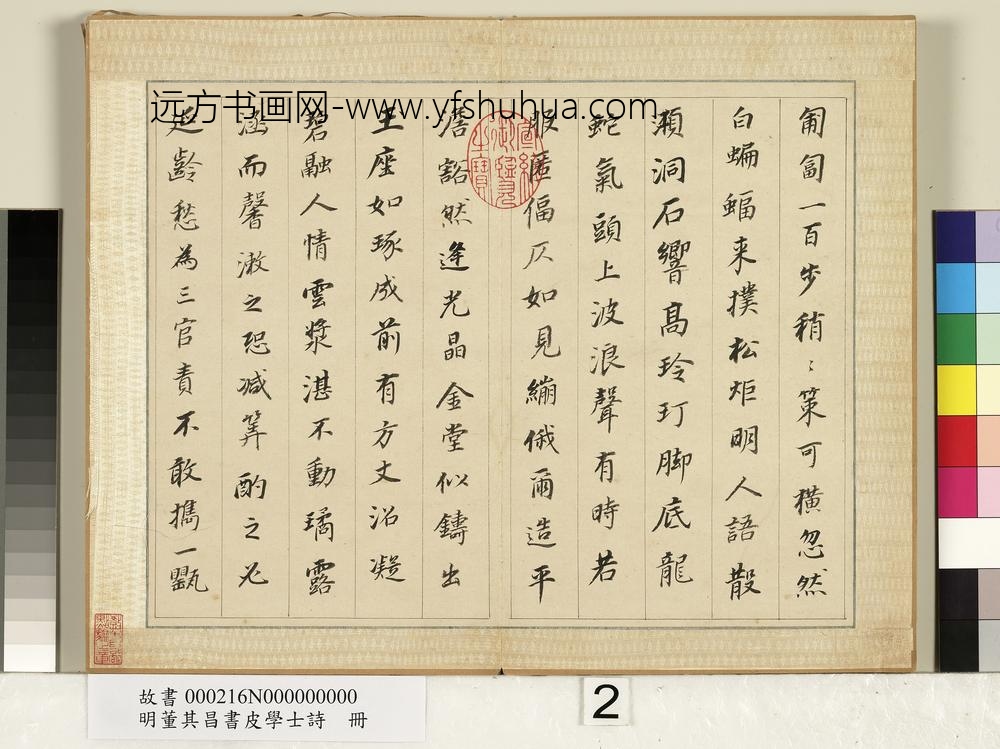 远方书画网-www.yfshuhua.com
匍匐一百步稍〻策可橫忽然
白蝙蝠来撲松炬明人語散
澒洞石響高玲玎脚底龍
蛇氣頭上波浪聲有時若
服匿偪仄如見繃俄爾造平
澹豁然逢光晶金堂似鑄出
玉座如琢成前有方丈沼凝
碧融人情雲漿湛不動璚露
涵而馨漱之恐減筭酌之必
延齡愁為三官責不敢攜一甖
故書 000216N000000000
明董其昌書皮學士詩 冊
2